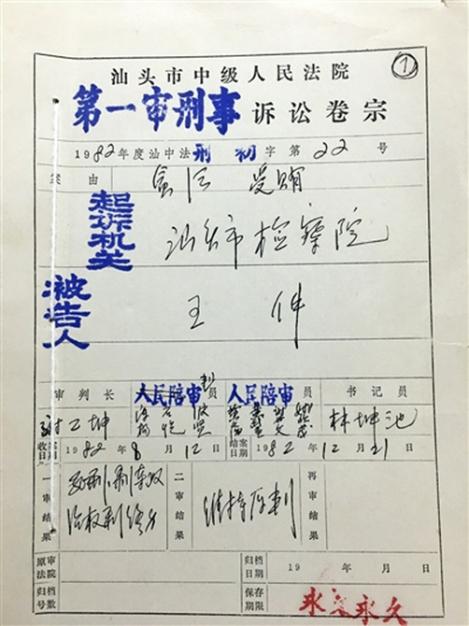 汕头市中级人民法院
①
第一审刑事诉讼卷宗
1982年度汕中法刑初字第22号
案由 贪污 受贿
起诉机关 汕头市检察院
被告人 王仲
审判长 人民陪审员 人民陪审员 书记员
林坤池
收案日期 1982年8月12日 结案日期 1982年12月21日
一审结果 死刑,剥夺政治权利终身
二审结果 维持原判
再审结果
原审法院
归档日期 19 年 月 日
归档号数
保存期限 永久